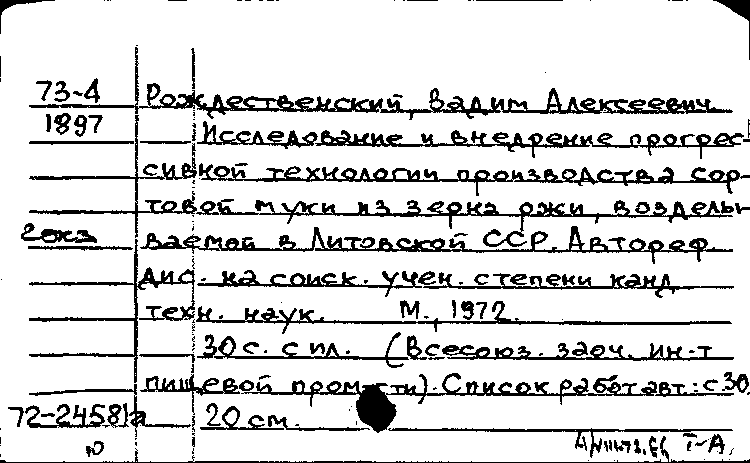 73-4 Рождественский, Вадим Алексеевич
1897 Исследование и внедрение прогрес-
сивной технологии производства сор-
товой муки из зерна ржи, возделы-
2 экз ваемой в Литовской ССР. Автореф.
дис. на соиск. учен. степени канд
техн. наук. М., 1972.
30 с. с ил. (Всесоюз. заоч. ин-т
пищевой пром-сти). Список работ авт.: с 30
72-24581а 20 см.
Ю Т-А,